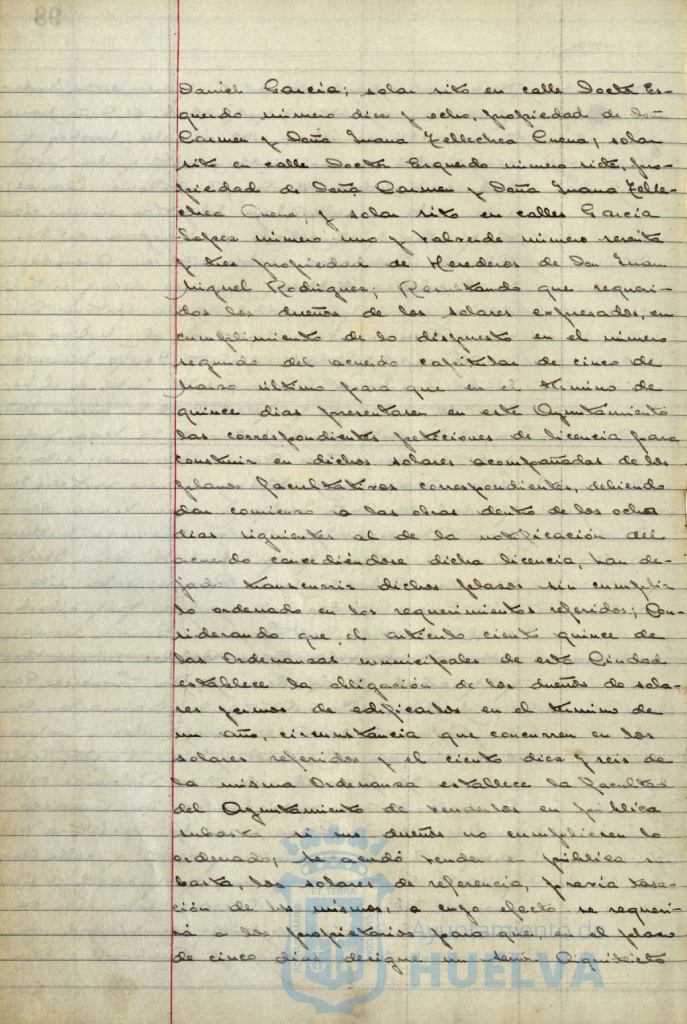 Daniel García; solar sito en calle Doctor Es-
querdo número diez y ocho, propiedad de Doña
Carmen y Doña Juana Tellechea Cueva; solar
sito en calle Doctor Esquerdo número siete, pro-
piedad de Doña Carmen y Doña Juana Telle-
chea Cueva; y solar sito en calles García
López número uno y Valverde número sesenta
y tres propiedad de Herederos de Don Juan
Miguel Rodríguez; Resultando que requeri-
dos los dueños de los solares expresados, en
cumplimiento de lo dispuesto en el número
segundo del acuerdo capitular de cinco de
Marzo último para que en el término de
quince días presentasen en este Ayuntamiento
las correspondientes peticiones de licencia para
construir en dichos solares acompañadas de los
planos facultativos correspondientes, debiendo
dar comienzo a las obras dentro de los ocho
días siguientes al de la notificación del
acuerdo concediéndose dicha licencia, han de-
jado transcurrir dichos plazos sin cumplir
lo ordenado en los requerimientos referidos; Con-
siderando que el artículo ciento quince de
las Ordenanzas municipales de esta Ciudad
establece la obligación de los dueños de sola-
res yermos de edificarlos en el término de
un año, circunstancia que concurren en los
solares referidos y el ciento diez y seis de
la misma Ordenanza establece la facultad
del Ayuntamiento de venderlos en pública
subasta si sus dueños no cumpliesen lo
ordenado; Se acordó vender en pública su-
basta, los solares de referencia, previa tasa-
ción de los mismos; a cuyo efecto se requeri-
rá a los propietarios para que, en el plazo
de cinco días designe un señor Arquitecto
Ayuntamiento de
HUELVA
98